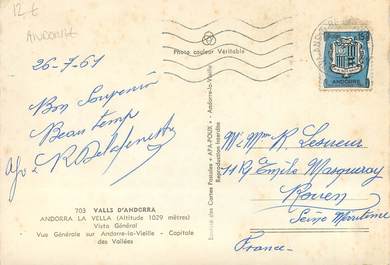 12 €
ANDORRE
26-7-61
Bon Souvenir
Beau temp
R Delafenestre
Photo couleur Véritable
703 VALLS D'ANDORRA
ANDORRA LA VELLA (Altitude 1029 mètres)
Vista Général
Vue Générale sur Andorre-la-Vieille - Capitale
des Vallées
Editions des Cartes Postales « APA-POUX » - Andorre-la-Vieille
Reproduction Interdite
ANDORRE
Mr Mme R. Lesueur
11 R Emile Masqueray
Rouen
Seine Maritime
France